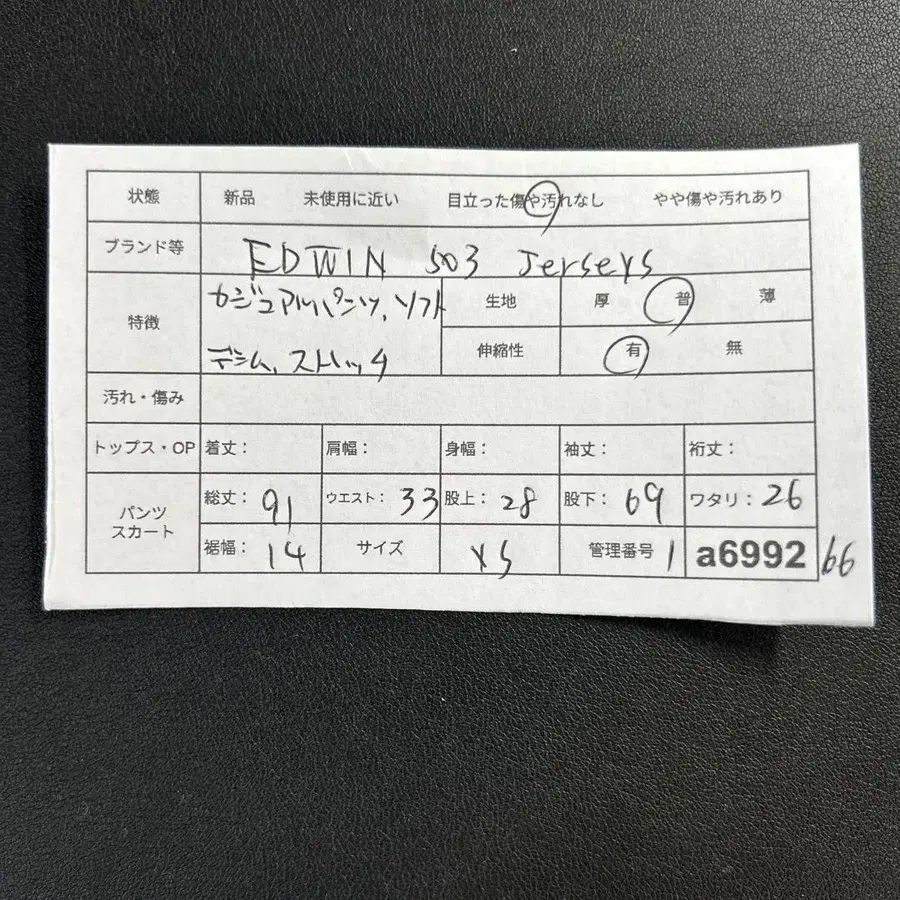 状態 新品 未使用に近い 目立った傷や汚れなし やや傷や汚れあり
ブランド等 EDWIN 503 Jerseys
特徴 カジュアルパンツ、ソフト 生地 厚 普 薄
デニム、ストレッチ 伸縮性 有 無
汚れ・傷み
トップス・OP 着丈： 肩幅： 身幅： 袖丈： 裄丈：
パンツ スカート 総丈：91 ウエスト：33 股上：28 股下：69 ワタリ：26
裾幅：14 サイズ XS 管理番号 1 a6992 66